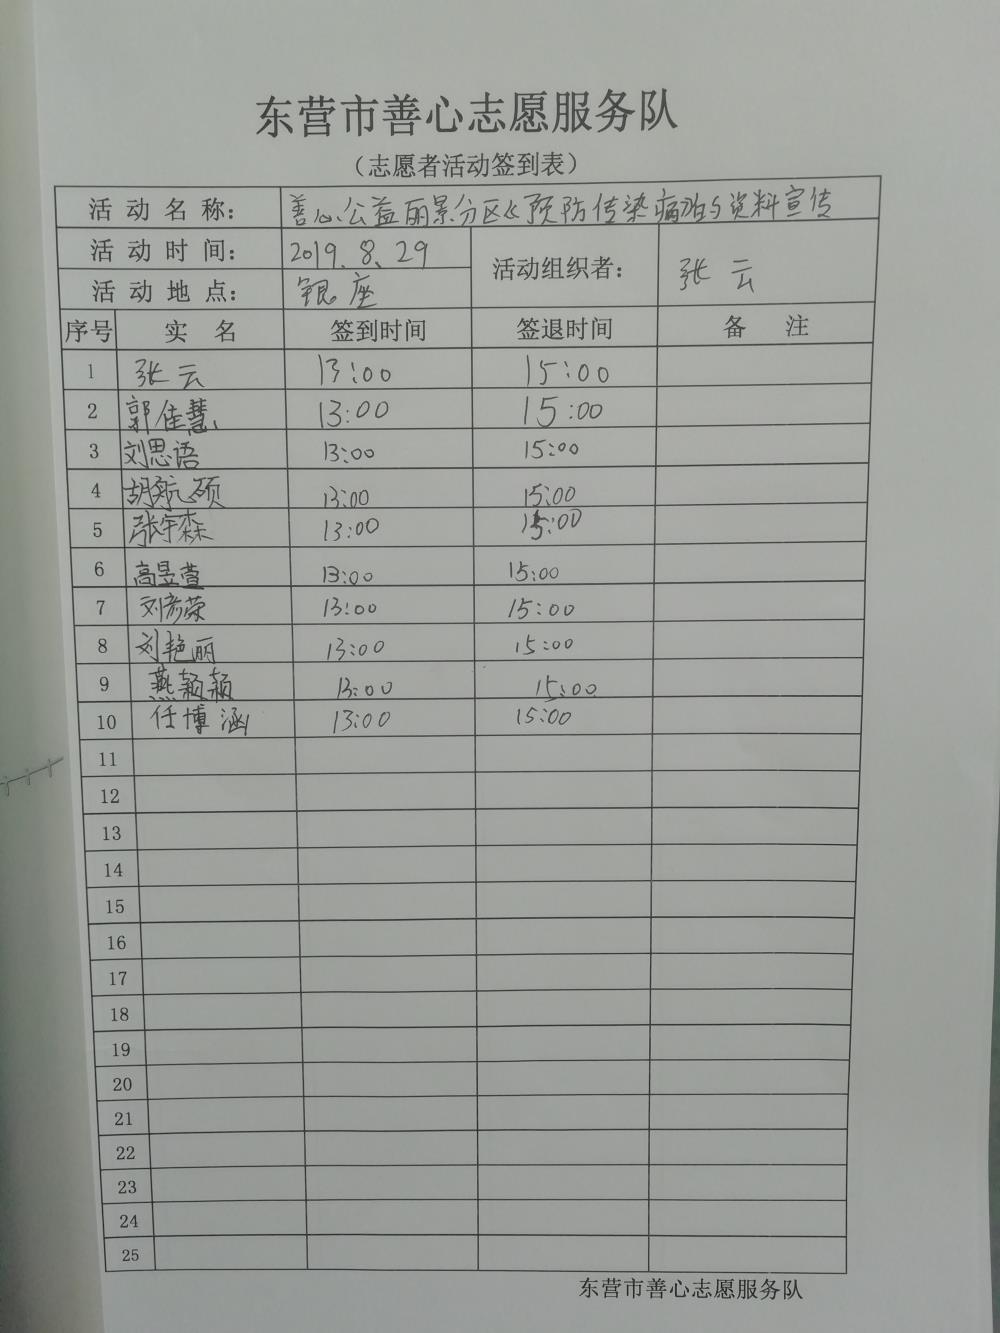 东营市善心志愿服务队
（志愿者活动签到表）
活动名称： 善心公益丽景分区《预防传染病的资料宣传
活动时间： 2019.8.29 活动组织者： 张云
活动地点： 银座
序号 实名 签到时间 签退时间 备注
1 张云 13:00 15:00
2 郭佳慧 13:00 15:00
3 刘思语 13:00 15:00
4 胡航硕 13:00 15:00
5 张宇森 13:00 15:00
6 高昱萱 13:00 15:00
7 刘彦荣 13:00 15:00
8 刘艳丽 13:00 15:00
9 燕颖颖 13:00 15:00
10 任博涵 13:00 15:00
11
12
13
14
15
16
17
18
19
20
21
22
23
24
25
东营市善心志愿服务队